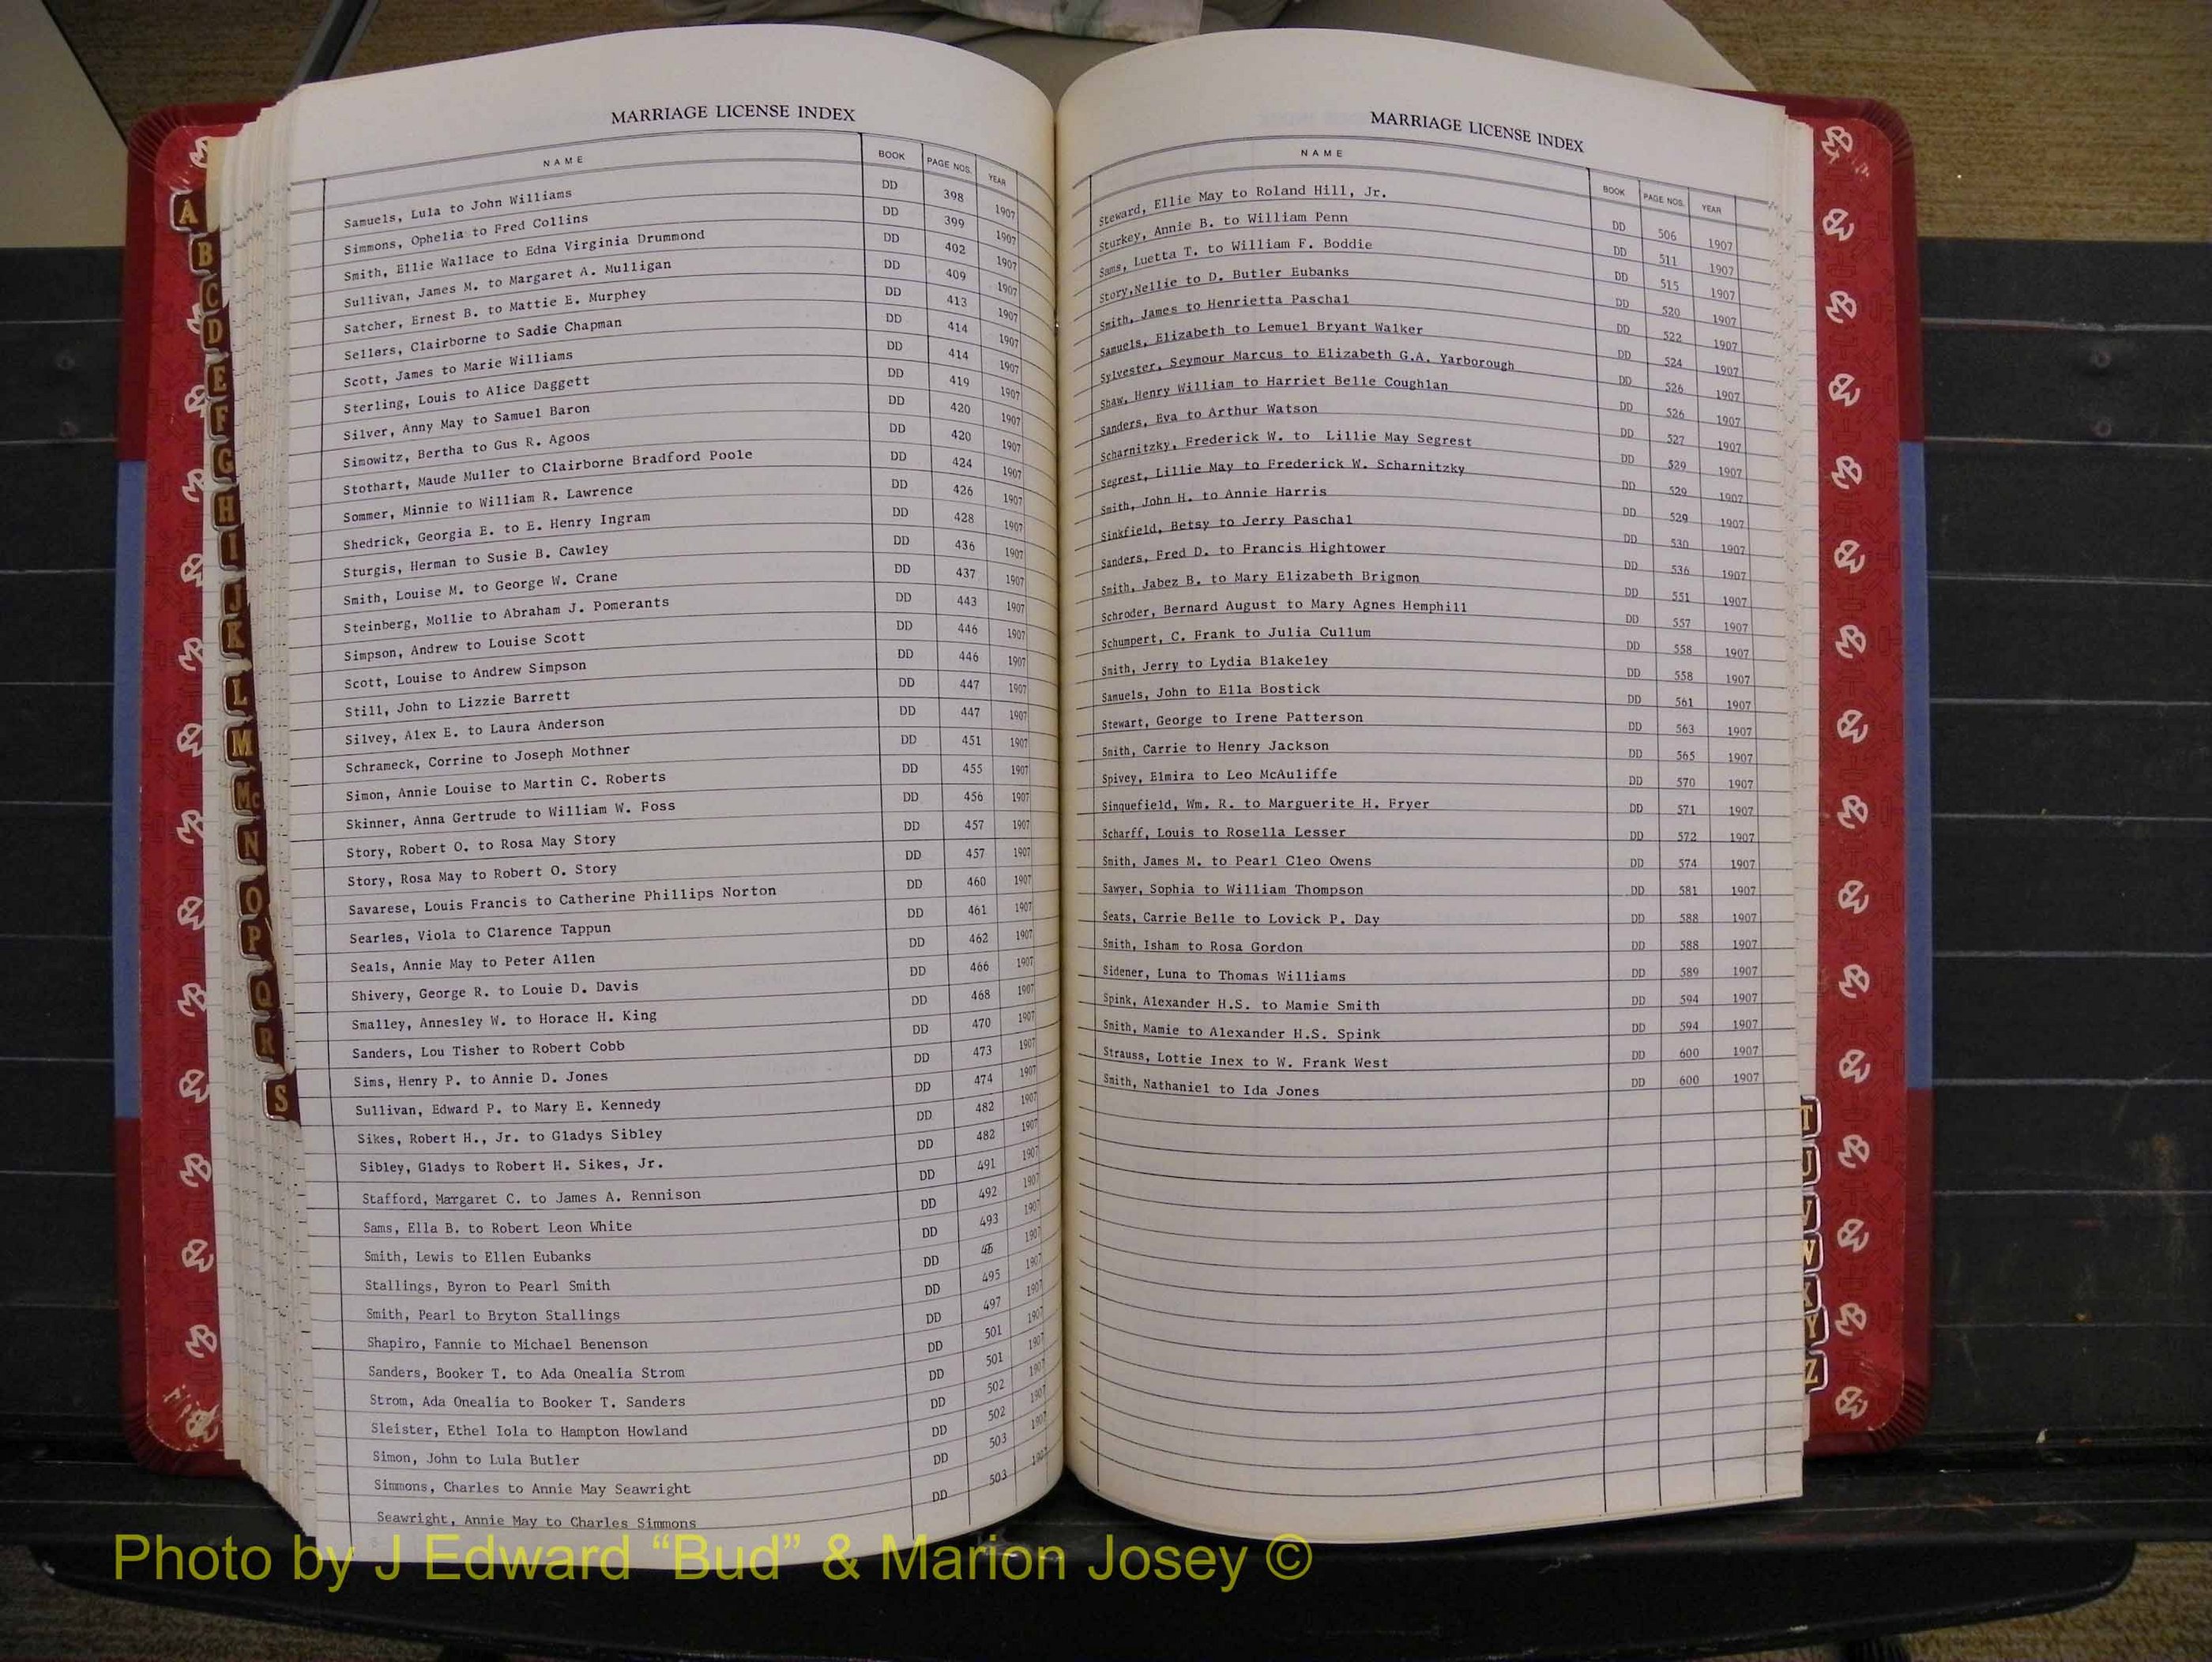 MARRIAGE LICENSE INDEX
NAME BOOK PAGE NOS. YEAR
Samuels, Lula to John Williams DD 398 1907
Simmons, Ophelia to Fred Collins DD 399 1907
Smith, Ellie Wallace to Edna Virginia Drummond DD 402 1907
Sullivan, James M. to Margaret A. Mulligan DD 409 1907
Satcher, Ernest B. to Mattie E. Murphey DD 413 1907
Sellers, Clairborne to Sadie Chapman DD 414 1907
Scott, James to Marie Williams DD 414 1907
Sterling, Louis to Alice Daggett DD 419 1907
Silver, Anny May to Samuel Baron DD 420 1907
Simowitz, Bertha to Gus R. Agoos DD 420 1907
Stothart, Maude Muller to Clairborne Bradford Poole DD 424 1907
Sommer, Minnie to William R. Lawrence DD 426 1907
Shedrick, Georgia E. to E. Henry Ingram DD 428 1907
Sturgis, Herman to Susie B. Cawley DD 436 1907
Smith, Louise M. to George W. Crane DD 437 1907
Steinberg, Mollie to Abraham J. Pomerants DD 443 1907
Simpson, Andrew to Louise Scott DD 446 1907
Scott, Louise to Andrew Simpson DD 446 1907
Still, John to Lizzie Barrett DD 447 1907
Silvey, Alex E. to Laura Anderson DD 447 1907
Schrameck, Corrine to Joseph Mothner DD 451 1907
Simon, Annie Louise to Martin C. Roberts DD 455 1907
Skinner, Anna Gertrude to William W. Foss DD 456 1907
Story, Robert O. to Rosa May Story DD 457 1907
Story, Rosa May to Robert O. Story DD 457 1907
Savarese, Louis Francis to Catherine Phillips Norton DD 460 1907
Searles, Viola to Clarence Tappun DD 461 1907
Seals, Annie May to Peter Allen DD 462 1907
Shivery, George R. to Louie D. Davis DD 466 1907
Smalley, Annesley W. to Horace H. King DD 468 1907
Sanders, Lou Tisher to Robert Cobb DD 470 1907
Sims, Henry P. to Annie D. Jones DD 473 1907
Sullivan, Edward P. to Mary E. Kennedy DD 474 1907
Sikes, Robert H., Jr. to Gladys Sibley DD 482 1907
Sibley, Gladys to Robert H. Sikes, Jr. DD 482 1907
Stafford, Margaret C. to James A. Rennison DD 491 1907
Sams, Ella B. to Robert Leon White DD 492 1907
Smith, Lewis to Ellen Eubanks DD 493 1907
Stallings, Byron to Pearl Smith DD 1907
Smith, Pearl to Bryton Stallings DD 495 1907
Shapiro, Fannie to Michael Benenson DD 497 1907
Sanders, Booker T. to Ada Onealia Strom DD 501 1907
Strom, Ada Onealia to Booker T. Sanders DD 501 1907
Sleister, Ethel Iola to Hampton Howland DD 502 1907
Simon, John to Lula Butler DD 502 1907
Simmons, Charles to Annie May Seawright DD 503 1907
Seawright, Annie May to Charles Simmons DD 503 1907
MARRIAGE LICENSE INDEX
NAME BOOK PAGE NOS. YEAR
Steward, Ellie May to Roland Hill, Jr. DD 506 1907
Sturkey, Annie B. to William Penn DD 511 1907
Sams, Luetta T. to William F. Boddie DD 515 1907
Story,Nellie to D. Butler Eubanks DD 520 1907
Smith, James to Henrietta Paschal DD 522 1907
Samuels, Elizabeth to Lemuel Bryant Walker DD 524 1907
Sylvester, Seymour Marcus to Elizabeth G.A. Yarborough DD 526 1907
Shaw, Henry William to Harriet Belle Coughlan DD 526 1907
Sanders, Eva to Arthur Watson DD 527 1907
Scharnitzky, Frederick W. to Lillie May Segrest DD 529 1907
Segrest, Lillie May to Frederick W. Scharnitzky DD 529 1907
Smith, John H. to Annie Harris DD 529 1907
Sinkfield, Betsy to Jerry Paschal DD 530 1907
Sanders, Fred D. to Francis Hightower DD 536 1907
Smith, Jabez B. to Mary Elizabeth Brigmon DD 551 1907
Schroder, Bernard August to Mary Agnes Hemphill DD 557 1907
Schumpert, C. Frank to Julia Cullum DD 558 1907
Smith, Jerry to Lydia Blakeley DD 558 1907
Samuels, John to Ella Bostick DD 561 1907
Stewart, George to Irene Patterson DD 563 1907
Smith, Carrie to Henry Jackson DD 565 1907
Spivey, Elmira to Leo McAuliffe DD 570 1907
Sinquefield, Wm. R. to Marguerite H. Fryer DD 571 1907
Scharff, Louis to Rosella Lesser DD 572 1907
Smith, James M. to Pearl Cleo Owens DD 574 1907
Sawyer, Sophia to William Thompson DD 581 1907
Seats, Carrie Belle to Lovick P. Day DD 588 1907
Smith, Isham to Rosa Gordon DD 588 1907
Sidener, Luna to Thomas Williams DD 589 1907
Spink, Alexander H.S. to Mamie Smith DD 594 1907
Smith, Mamie to Alexander H.S. Spink DD 594 1907
Strauss, Lottie Inex to W. Frank West DD 600 1907
Smith, Nathaniel to Ida Jones DD 600 1907
A
B
C
D
E
F
G
H
I
J
K
L
M
Mc
N
O
P
Q
R
S
T
U
V
W
X
Y
Z
Photo by J Edward “Bud” & Marion Josey ©